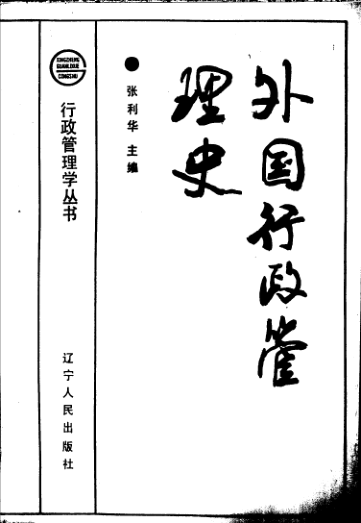 外国行政管
理史
●张利华 主编
XINGZHENG
GUANLIXUE
CONGSHU
行政管理学丛书
辽宁人民出版社